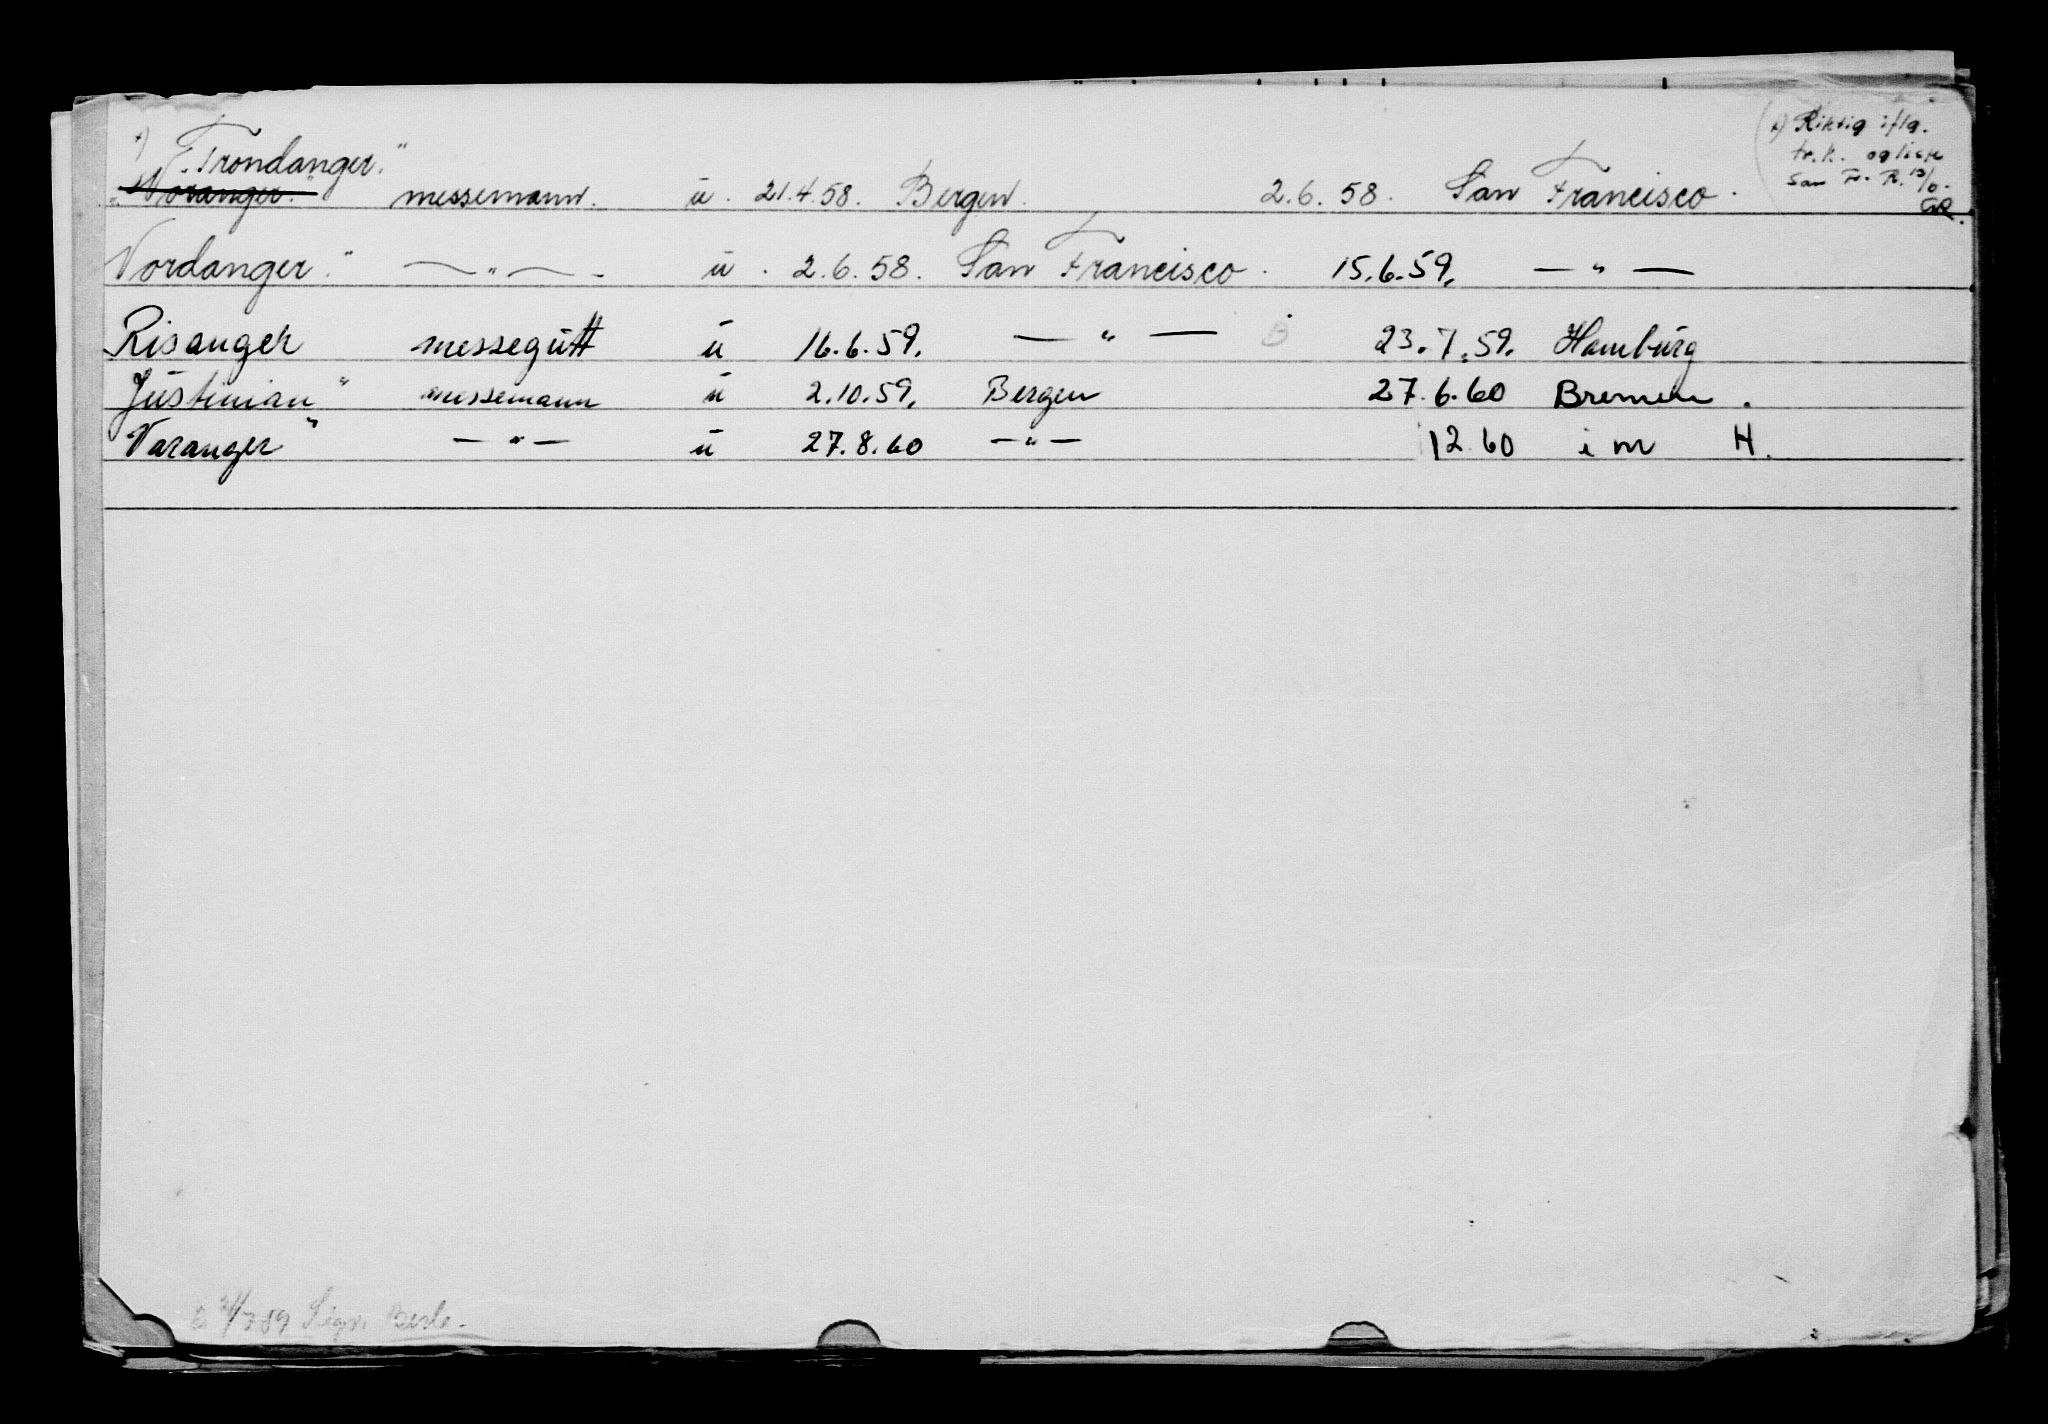 x) "Trondanger." x) Riktig iflg.
tr.k. og liste
San Fr. R.
"Noranger." messemann. u. 21.4.58. Bergen. 2.6.58. San Francisco. GR.
Nordanger." — " — u. 2.6.58. San Francisco. 15.6.59. — " —
Risanger messegutt u 16.6.59. — " — 23.7.59. Hamburg
Justinian" messemann u 2.10.59. Bergen 27.6.60 Bremen.
Varanger" — " — u 27.8.60 — " — 12.60 i m H.